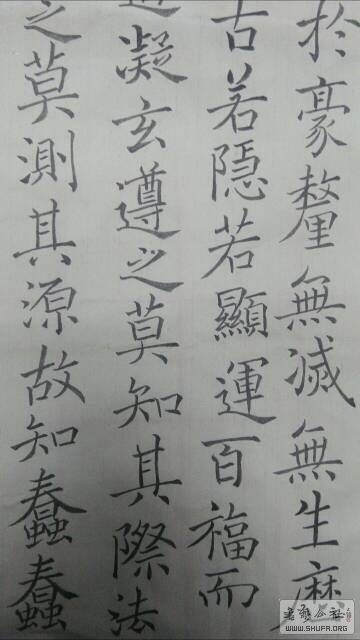 於豪釐無滅無生歷
古若隱若顯運百福而
凝玄遵之莫知其際法
之莫測其源故知蠢蠢
WWW.SHUFA.ORG